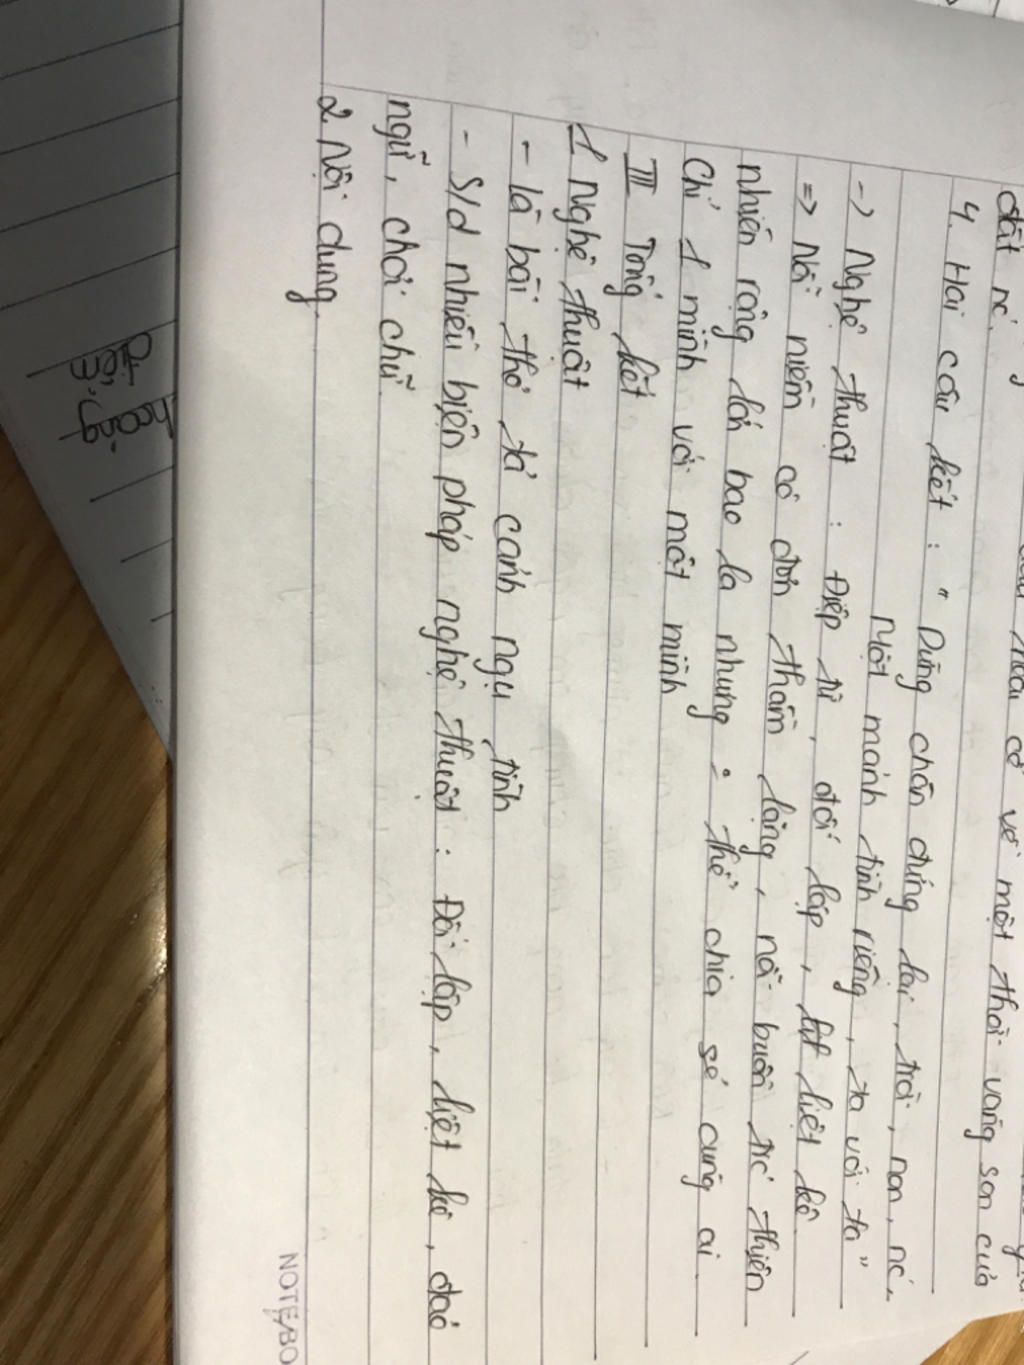 đất nc.
về một thời vang son của
4. Hai câu kết : " Dừng chân đứng lại, trời, non, nc,
Một mảnh tình riêng, ta với ta "
-> Nghệ thuật : Điệp từ, đối lập, liệt kê.
=> Nỗi niềm cô đơn thầm lặng, nỗi buồn trc thiên
nhiên rộng lớn bao la nhưng ko thể chia sẻ cùng ai
Chỉ 1 mình với một mình
III Tổng kết
1 Nghệ thuật
- là bài thơ tả cảnh ngụ tình
- S/d nhiều biện pháp nghệ thuật : Đối lập, liệt kê, đảo
ngữ, chơi chữ.
2. Nội dung.
NOTEBO